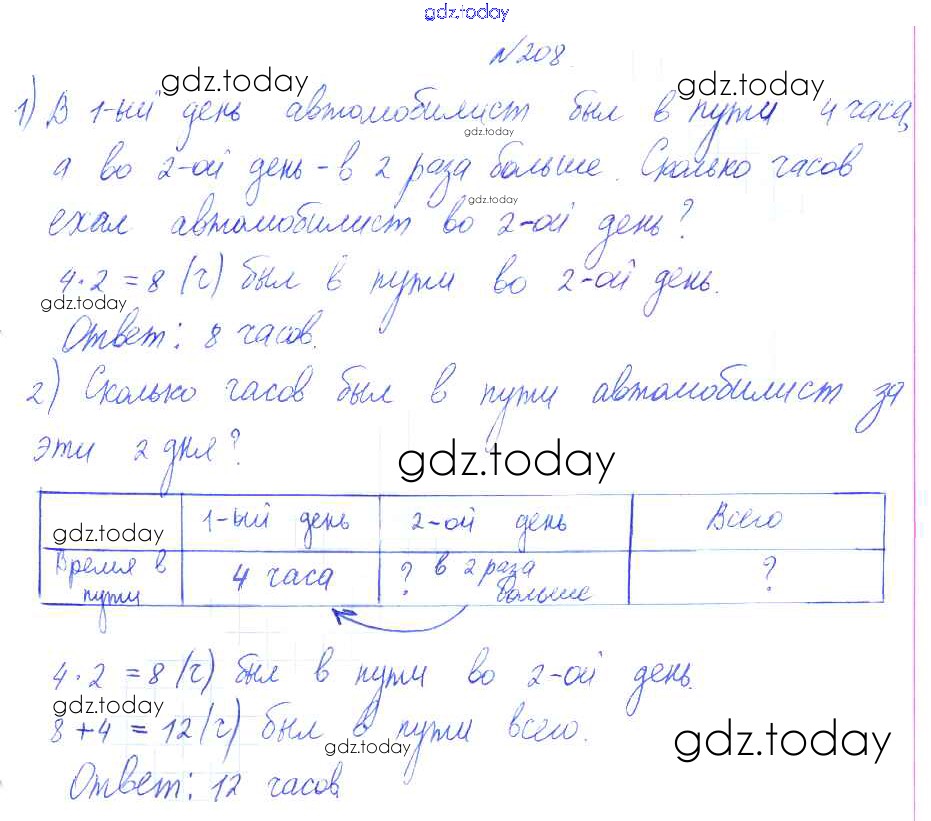 gdz.today
№208.
gdz.today gdz.today
1) В 1-ый день автомобилист был в пути 4 часа,
gdz.today
а во 2-ой день - в 2 раза больше. Сколько часов
gdz.today
ехал автомобилист во 2-ой день?
4·2=8 (ч) был в пути во 2-ой день.
gdz.today
Ответ: 8 часов.
2) Сколько часов был в пути автомобилист за
эти 2 дня?
gdz.today
1-ый день 2-ой день Всего
gdz.today
Время в пути 4 часа ? в 2 раза больше ?
4·2=8 (ч) был в пути во 2-ой день.
gdz.today
8+4=12 (ч) был в пути всего.
gdz.today gdz.today
Ответ: 12 часов